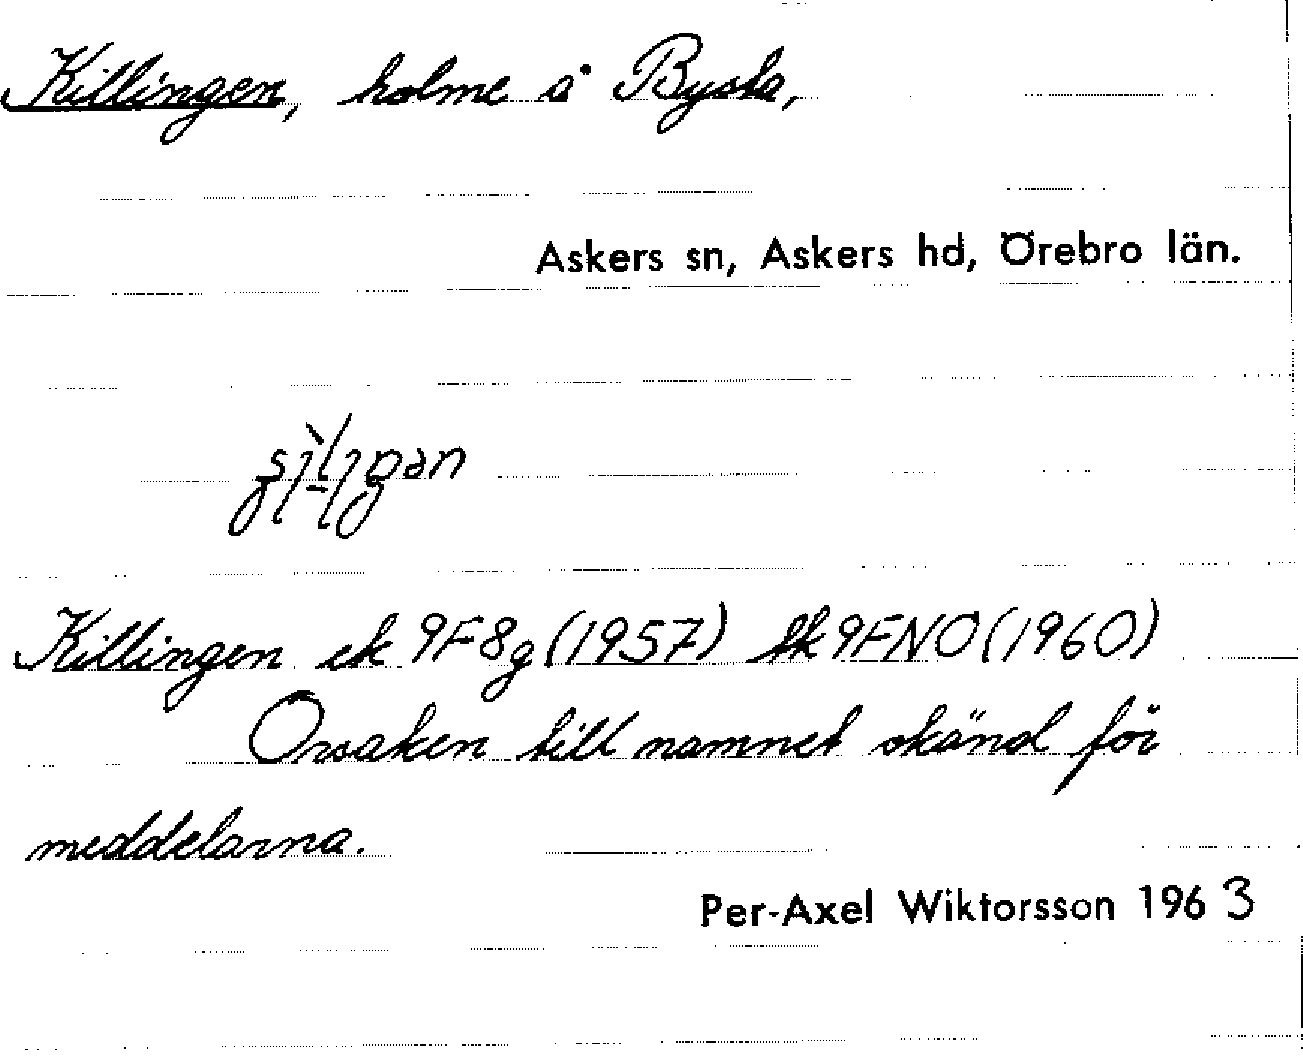 Killingen, holme å Bysta,
Askers sn, Askers hd, Örebro län.
Killingen ek 9F8g (1957) sk 9FNO (1960)
Orsaken till namnet okänd för
meddelarna.
Per-Axel Wiktorsson 1963